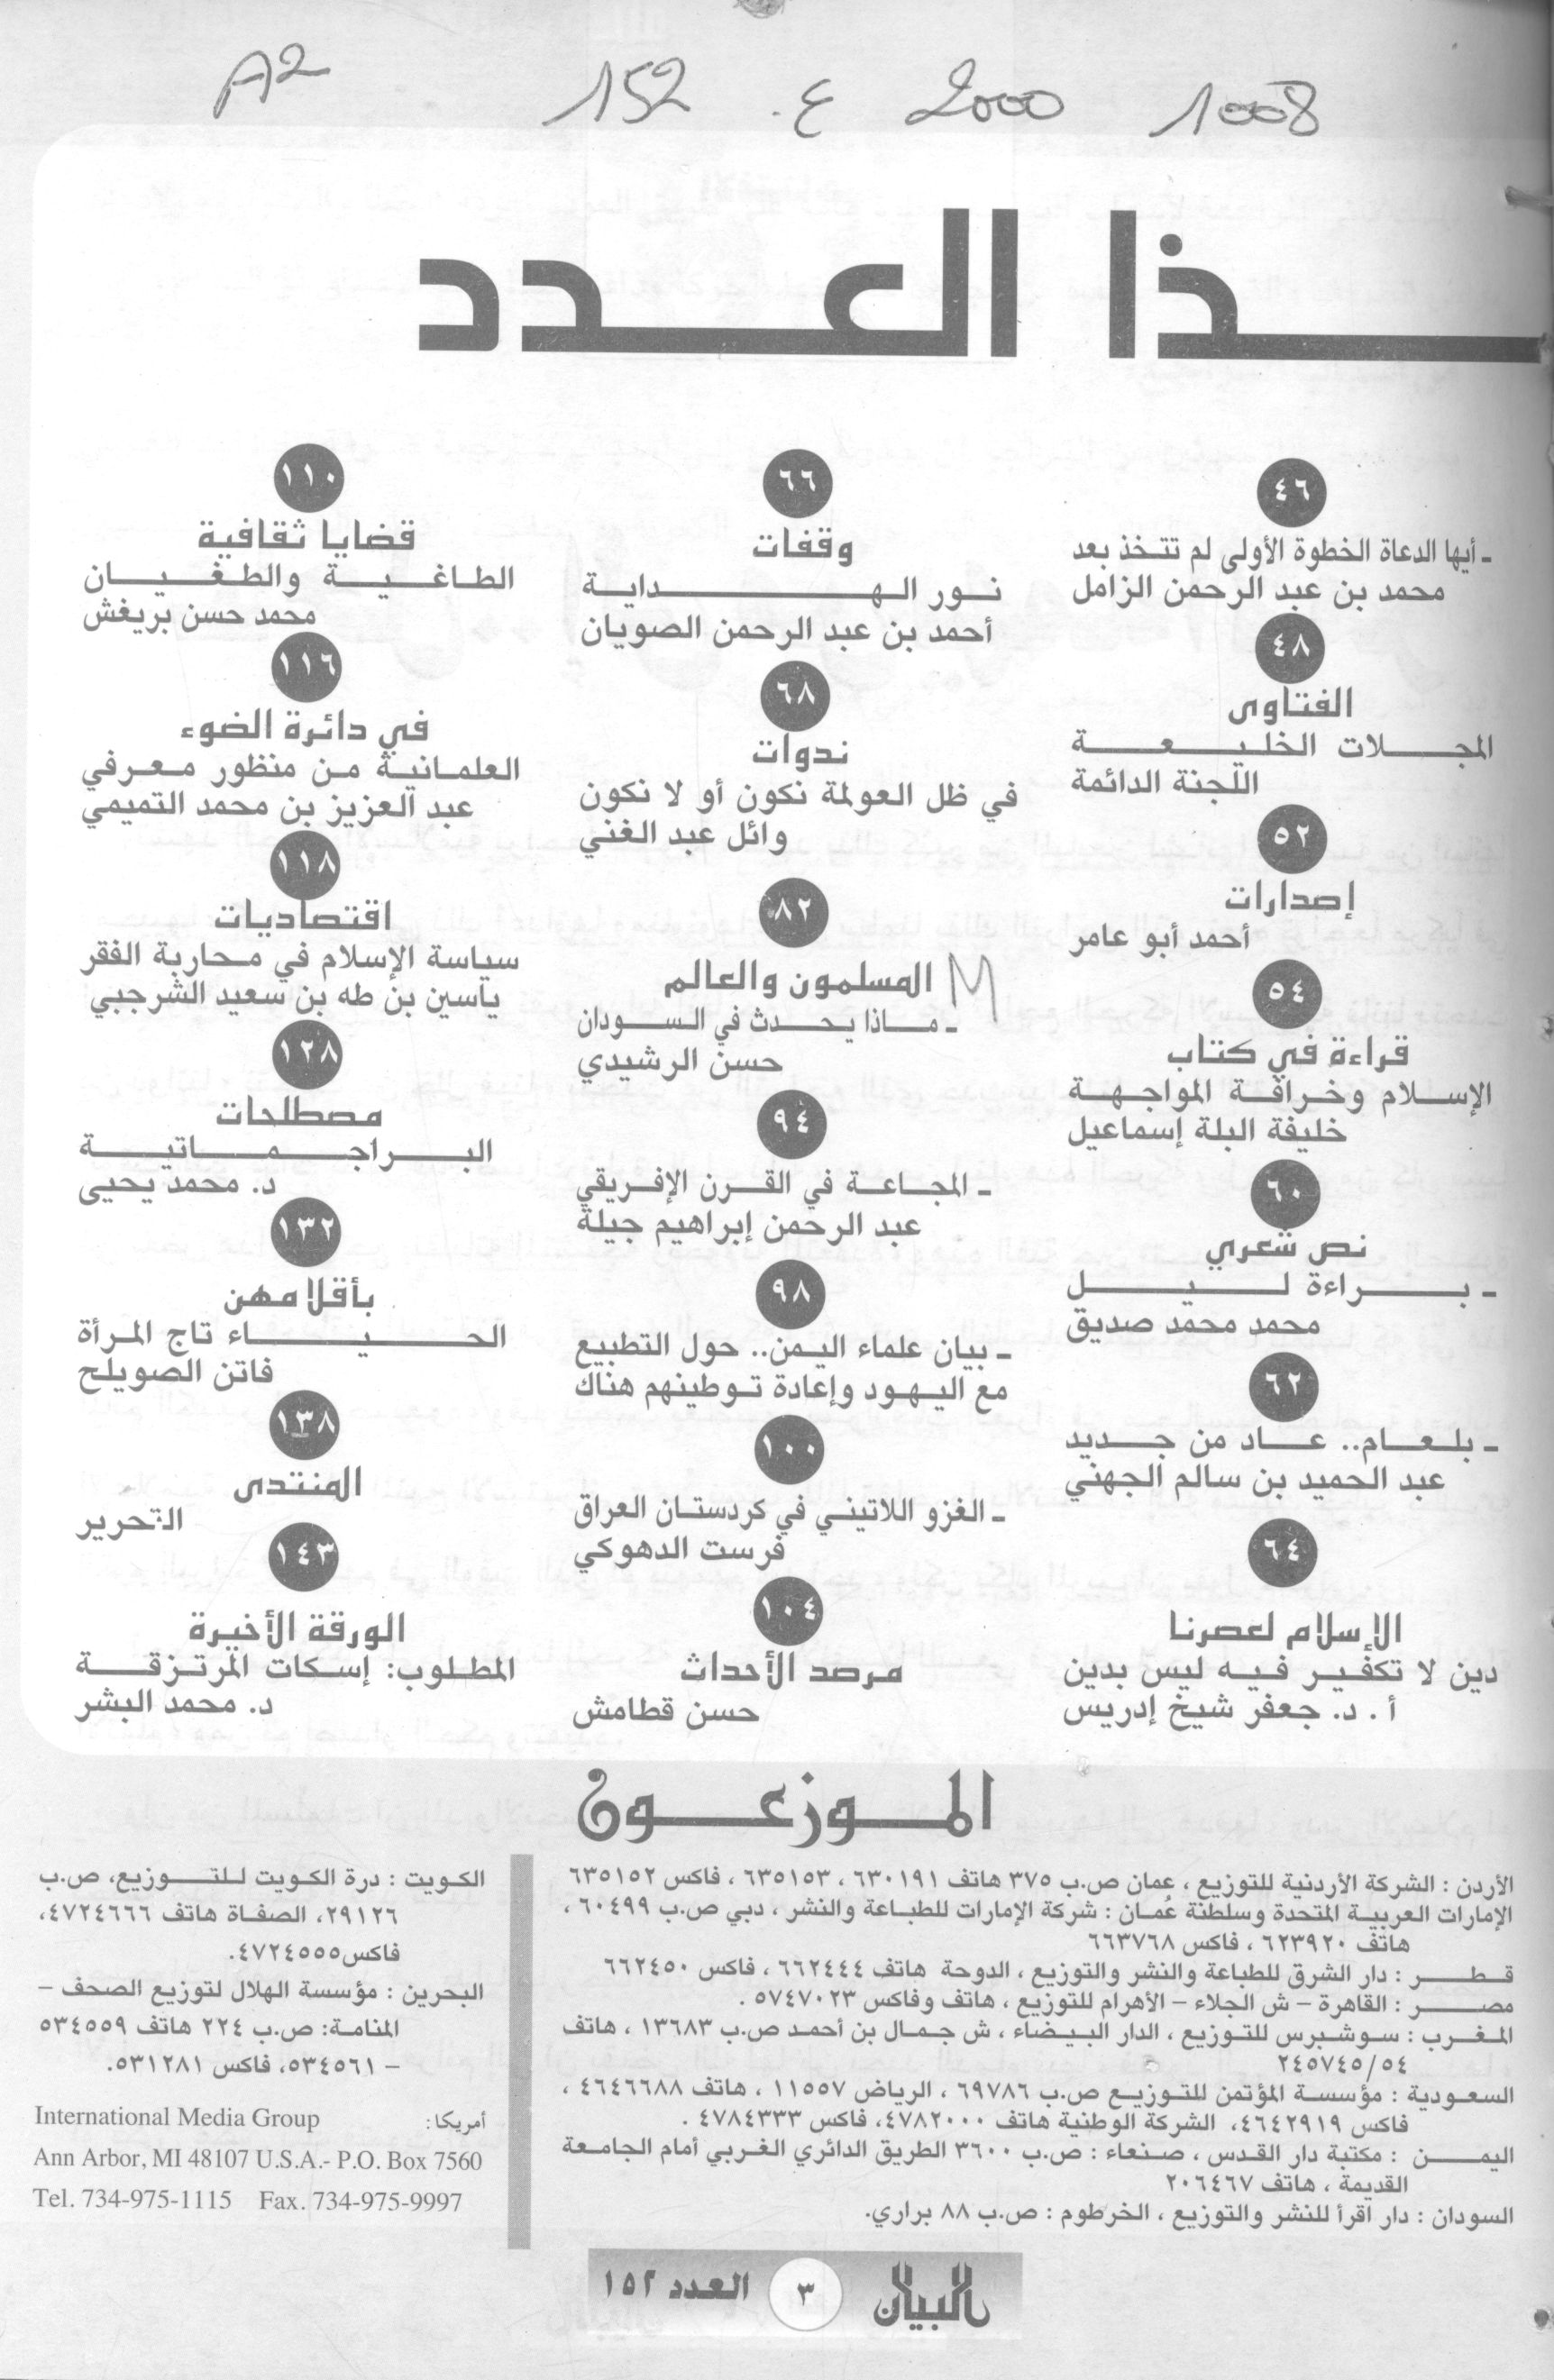 A2 152 ع. 2000 1008
ـذا العدد
٤٦
ـ أيها الدعاة الخطوة الأولى لم تتخذ بعد
محمد بن عبد الرحمن الزامل
٤٨
الفتاوى
المجلات الخليعة
اللجنة الدائمة
٥٢
إصدارات
أحمد أبو عامر
٥٤
قراءة في كتاب
الإسلام وخرافة المواجهة
خليفة البلة إسماعيل
٦٠
نص شعري
ـ براءة ليل
محمد محمد صديق
٦٢
ـ بلعام.. عاد من جديد
عبد الحميد بن سالم الجهني
٦٤
الإسلام لعصرنا
دين لا تكفير فيه ليس بدين
أ. د. جعفر شيخ إدريس
٦٦
وقفات
نور الهداية
أحمد بن عبد الرحمن الصويان
٦٨
ندوات
في ظل العولمة نكون أو لا نكون
وائل عبد الغني
٨٢
المسلمون والعالم
ـ ماذا يحدث في السودان
حسن الرشيدي
٩٤
ـ المجاعة في القرن الإفريقي
عبد الرحمن إبراهيم جيلة
٩٨
ـ بيان علماء اليمن.. حول التطبيع
مع اليهود وإعادة توطينهم هناك
١٠٠
ـ الغزو اللاتيني في كردستان العراق
فرست الدهوكي
١٠٤
مرصد الأحداث
حسن قطامش
١١٠
قضايا ثقافية
الطاغية والطغيان
محمد حسن بريغش
١١٦
في دائرة الضوء
العلمانية من منظور معرفي
عبد العزيز بن محمد التميمي
١١٨
اقتصاديات
سياسة الإسلام في محاربة الفقر
ياسين بن طه بن سعيد الشرجبي
١٢٨
مصطلحات
البراجماتية
د. محمد يحيى
١٣٢
بأقلامهن
الحياء تاج المرأة
فاتن الصويلح
١٣٨
المنتدى
التحرير
١٤٣
الورقة الأخيرة
المطلوب: إسكات المرتزقة
د. محمد البشر
الموزعون
الأردن : الشركة الأردنية للتوزيع ، عمان ص.ب ٣٧٥ هاتف ٦٣٠١٩١ ، ٦٣٥١٥٣ ، فاكس ٦٣٥١٥٢
الإمارات العربية المتحدة وسلطنة عُمان : شركة الإمارات للطباعة والنشر ، دبي ص.ب ٦٠٤٩٩ ،
هاتف ٦٢٣٩٢٠ ، فاكس ٦٦٣٧٦٨
قطر : دار الشرق للطباعة والنشر والتوزيع ، الدوحة هاتف ٦٦٢٤٤٤ ، فاكس ٦٦٢٤٥٠
مصر : القاهرة - ش الجلاء - الأهرام للتوزيع ، هاتف وفاكس ٥٧٤٧٠٢٣ .
المغرب : سوشبرس للتوزيع ، الدار البيضاء ، ش جمال بن أحمد ص.ب ١٣٦٨٣ ، هاتف
٢٤٥٧٤٥/٥٤
السعودية : مؤسسة المؤتمن للتوزيع ص.ب ٦٩٧٨٦ ، الرياض ١١٥٥٧ ، هاتف ٤٦٤٦٦٨٨ ،
فاكس ٤٦٤٢٩١٩، الشركة الوطنية هاتف ٤٧٨٢٠٠٠، فاكس ٤٧٨٤٣٣٣ .
اليمن : مكتبة دار القدس ، صنعاء : ص.ب ٣٦٠٠ الطريق الدائري الغربي أمام الجامعة
القديمة ، هاتف ٢٠٦٤٦٧
السودان : دار اقرأ للنشر والتوزيع ، الخرطوم : ص.ب ٨٨ براري.
الكويت : درة الكويت للتوزيع، ص.ب
٢٩١٢٦، الصفاة هاتف ٤٧٢٤٦٦٦،
فاكس٤٧٢٤٥٥٥.
البحرين : مؤسسة الهلال لتوزيع الصحف -
المنامة: ص.ب ٢٢٤ هاتف ٥٣٤٥٥٩
- ٥٣٤٥٦١، فاكس ٥٣١٢٨١.
أمريكا: International Media Group
Ann Arbor, MI 48107 U.S.A.- P.O. Box 7560
Tel. 734-975-1115 Fax. 734-975-9997
البيان ٣ العدد ١٥٢